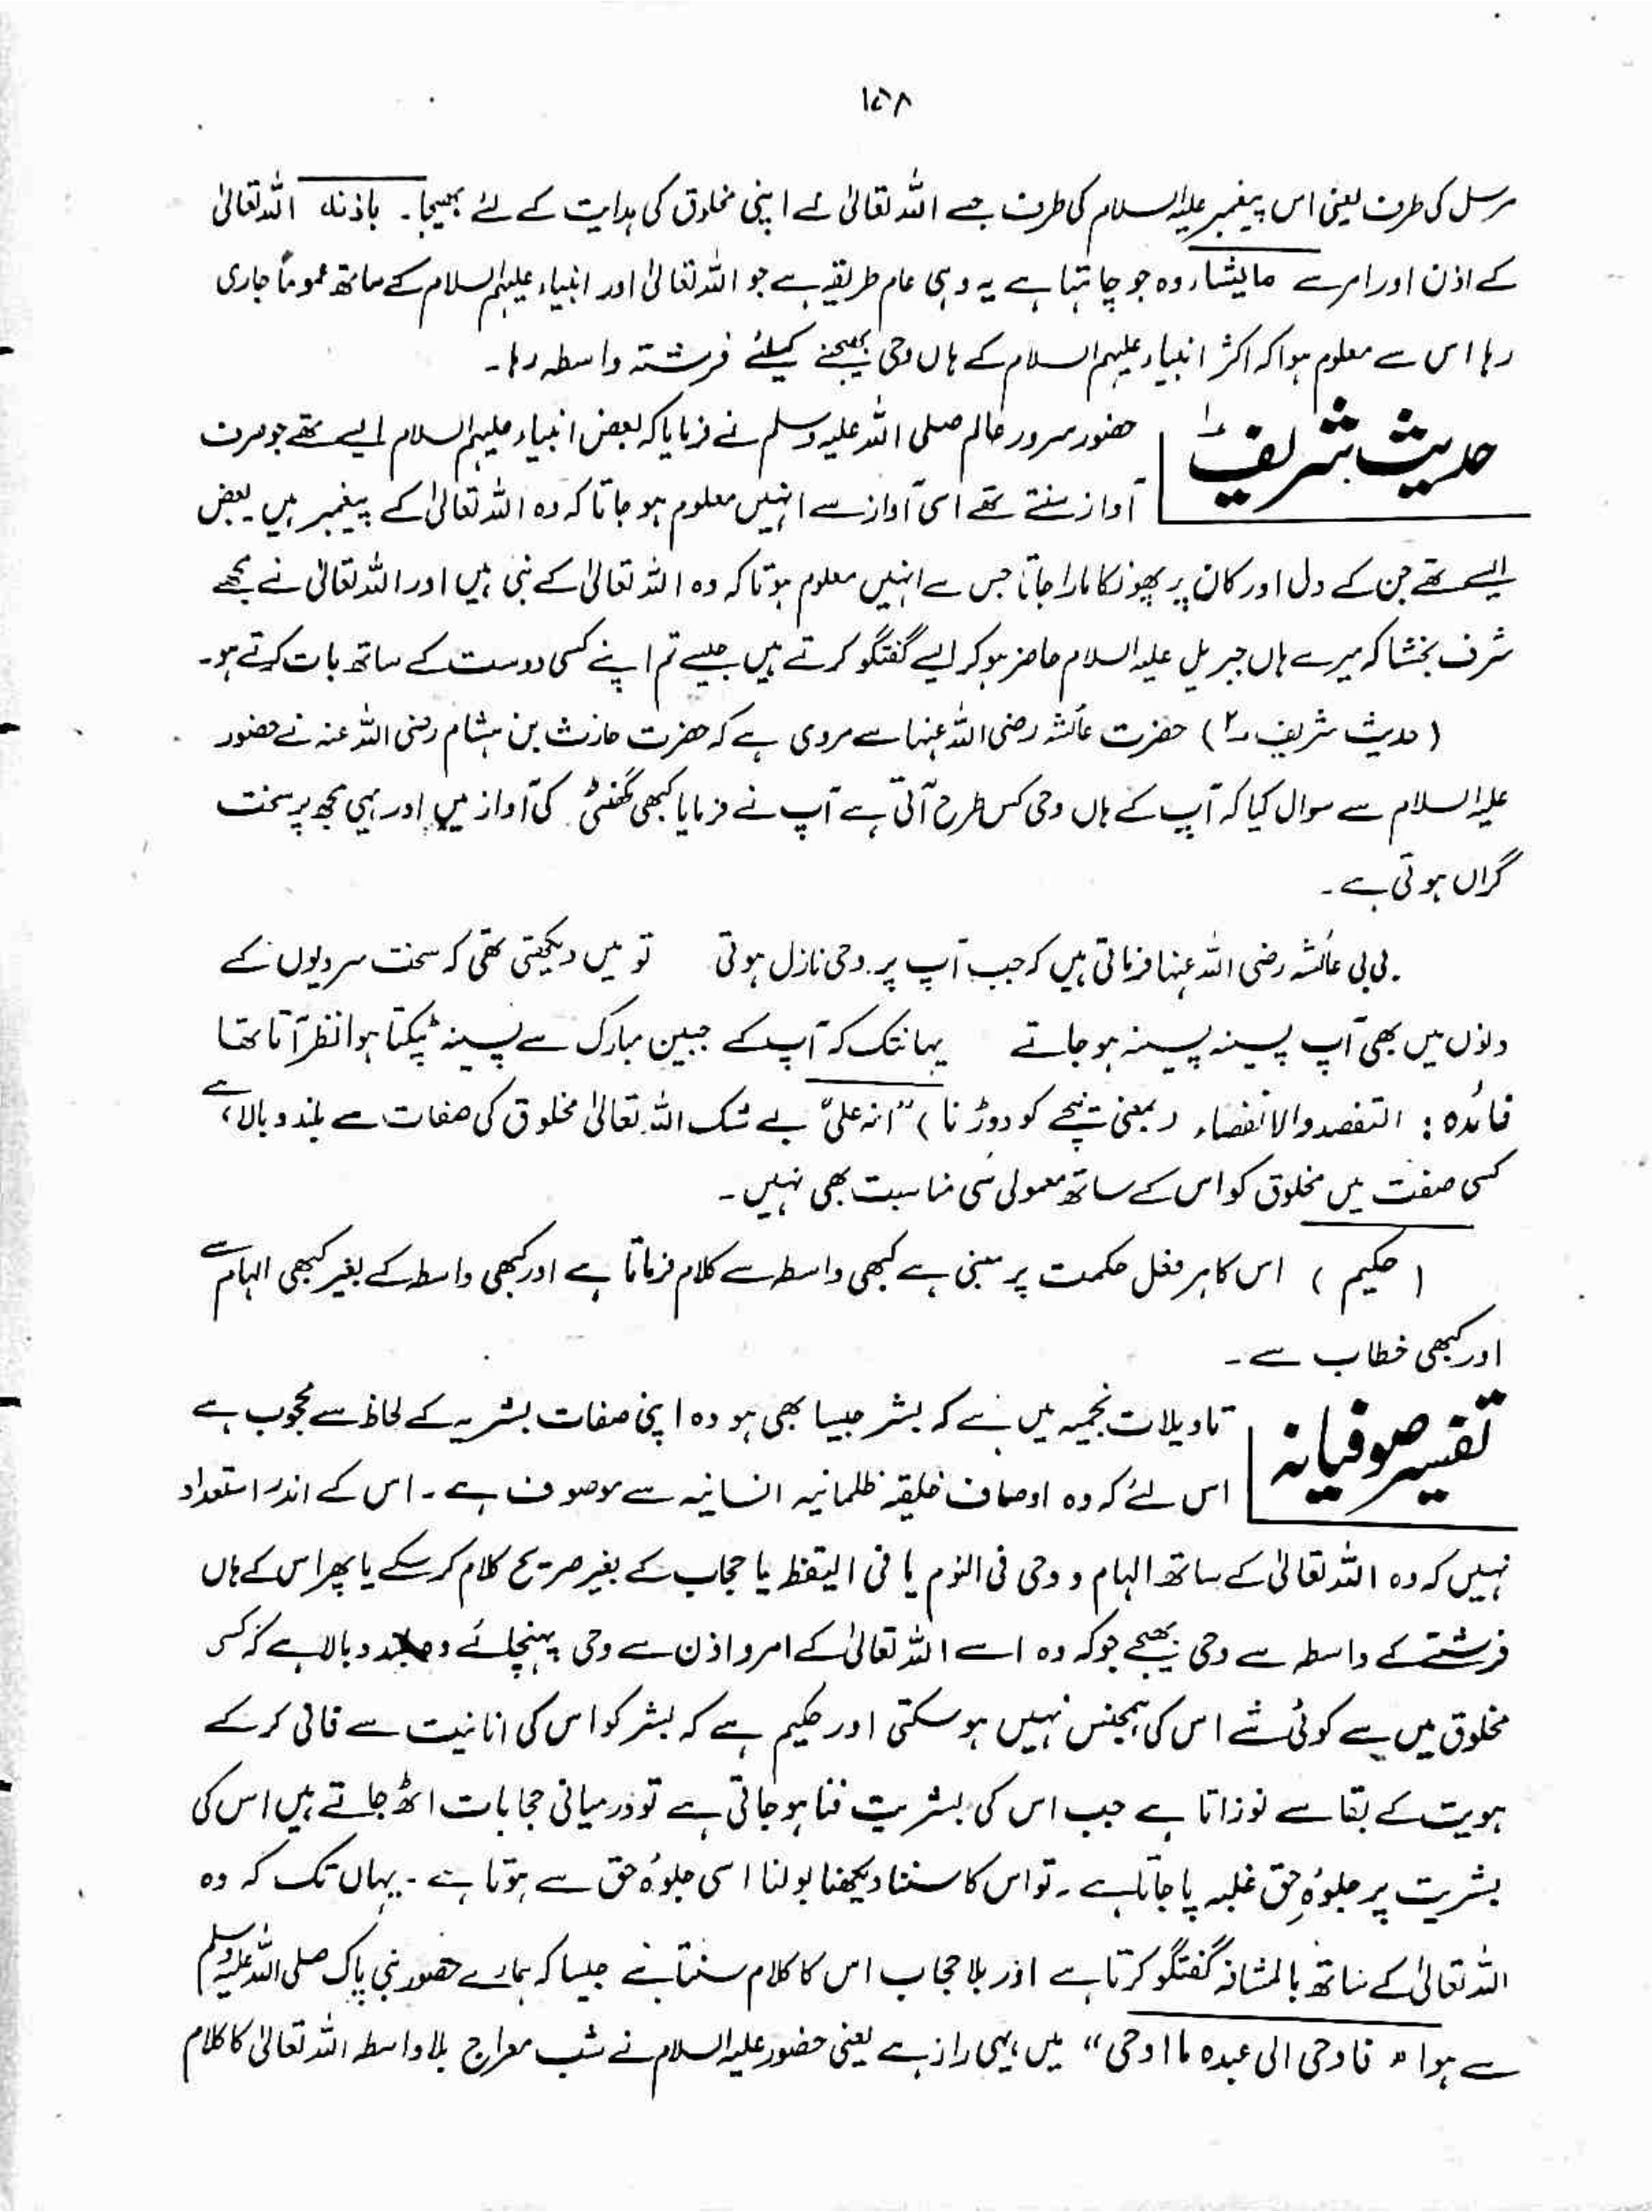 ۱۵۸
مرسل کی طرف یعنی اس پیغمبر علیہ السلام کی طرف جسے اللہ تعالیٰ نے اپنی مخلوق کی ہدایت کے لئے بھیجا۔ باذنہ اللہ تعالیٰ
کے اذن اور امر سے مایشاء وہ جو چاہتا ہے یہ وہی عام طریقہ ہے جو اللہ تعالیٰ اور انبیاء علیہم السلام کے ساتھ عموماً جاری
رہا اس سے معلوم ہوا کہ اکثر انبیاء علیہم السلام کے ہاں وحی بھیجنے کیلئے فرشتہ واسطہ رہا۔
حدیث شریف ۱ حضور سرور عالم صلی اللہ علیہ وسلم نے فرمایا کہ بعض انبیاء علیہم السلام ایسے تھے جو صرف
آواز سنتے تھے اسی آواز سے انہیں معلوم ہو جاتا کہ وہ اللہ تعالیٰ کے پیغمبر ہیں بعض
ایسے تھے جن کے دل اور کان پر پھونکا مارا جاتا جس سے انہیں معلوم ہوتا کہ وہ اللہ تعالیٰ کے نبی ہیں اور اللہ تعالیٰ نے مجھے
شرف بخشا کہ میرے ہاں جبریل علیہ السلام حاضر ہو کر ایسے گفتگو کرتے ہیں جیسے تم اپنے کسی دوست کے ساتھ بات کرتے ہو۔
(حدیث شریف ۲) حضرت عائشہ رضی اللہ عنہا سے مروی ہے کہ حضرت حارث بن ہشام رضی اللہ عنہ نے حضور
علیہ السلام سے سوال کیا کہ آپ کے ہاں وحی کس طرح آتی ہے آپ نے فرمایا کبھی گھنٹی کی آواز میں اور یہی مجھ پر سخت
گراں ہوتی ہے۔
بی بی عائشہ رضی اللہ عنہا فرماتی ہیں کہ جب آپ پر وحی نازل ہوتی تو میں دیکھتی تھی کہ سخت سردیوں کے
دنوں میں بھی آپ پسینہ پسینہ ہو جاتے یہانتک کہ آپ کے جبین مبارک سے پسینہ ٹپکتا ہوا نظر آتا تھا
فائدہ : التفصد والانفصاء (بمعنی نیچے کو دوڑنا) "انہ علیّ بے شک اللہ تعالیٰ مخلوق کی صفات سے بلند و بالا ہے،
کسی صفت میں مخلوق کو اس کے ساتھ معمولی سی مناسبت بھی نہیں۔
(حکیم) اس کا ہر فعل حکمت پر مبنی ہے کبھی واسطہ سے کلام فرماتا ہے اور کبھی واسطہ کے بغیر کبھی الہام سے
اور کبھی خطاب سے۔
تفسیر صوفیانہ تاویلات نجمیہ میں ہے کہ بشر جیسا بھی ہو وہ اپنی صفات بشریہ کے لحاظ سے محجوب ہے
اس لئے کہ وہ اوصاف خلقیہ ظلمانیہ انسانیہ سے موصوف ہے۔ اس کے اندر استعداد
نہیں کہ وہ اللہ تعالیٰ کے ساتھ الہام و وحی فی النوم یا فی الیقظہ یا حجاب کے بغیر صریح کلام کر سکے یا پھر اس کے ہاں
فرشتے کے واسطہ سے وحی بھیجے جو کہ وہ اسے اللہ تعالیٰ کے امر و اذن سے وحی پہنچائے وہ بلند و بالا ہے کہ کسی
مخلوق میں سے کوئی شے اس کی ہمجنس نہیں ہو سکتی اور حکیم ہے کہ بشر کو اس کی انانیت سے فانی کر کے
ہویت کے بقا سے نوازتا ہے جب اس کی بشریت فنا ہو جاتی ہے تو درمیانی حجابات اٹھ جاتے ہیں اس کی
بشریت پر جلوۂ حق غلبہ پا جاتا ہے۔ تو اس کا سننا دیکھنا بولنا اسی جلوۂ حق سے ہوتا ہے۔ یہاں تک کہ وہ
اللہ تعالیٰ کے ساتھ بالمشافہ گفتگو کرتا ہے اور بلا حجاب اس کا کلام سنتا ہے جیسا کہ ہمارے حضور نبی پاک صلی اللہ علیہ وسلم
سے ہوا "فاوحی الی عبدہ ما اوحی" میں یہی راز ہے یعنی حضور علیہ السلام نے شب معراج بلا واسطہ اللہ تعالیٰ کا کلام